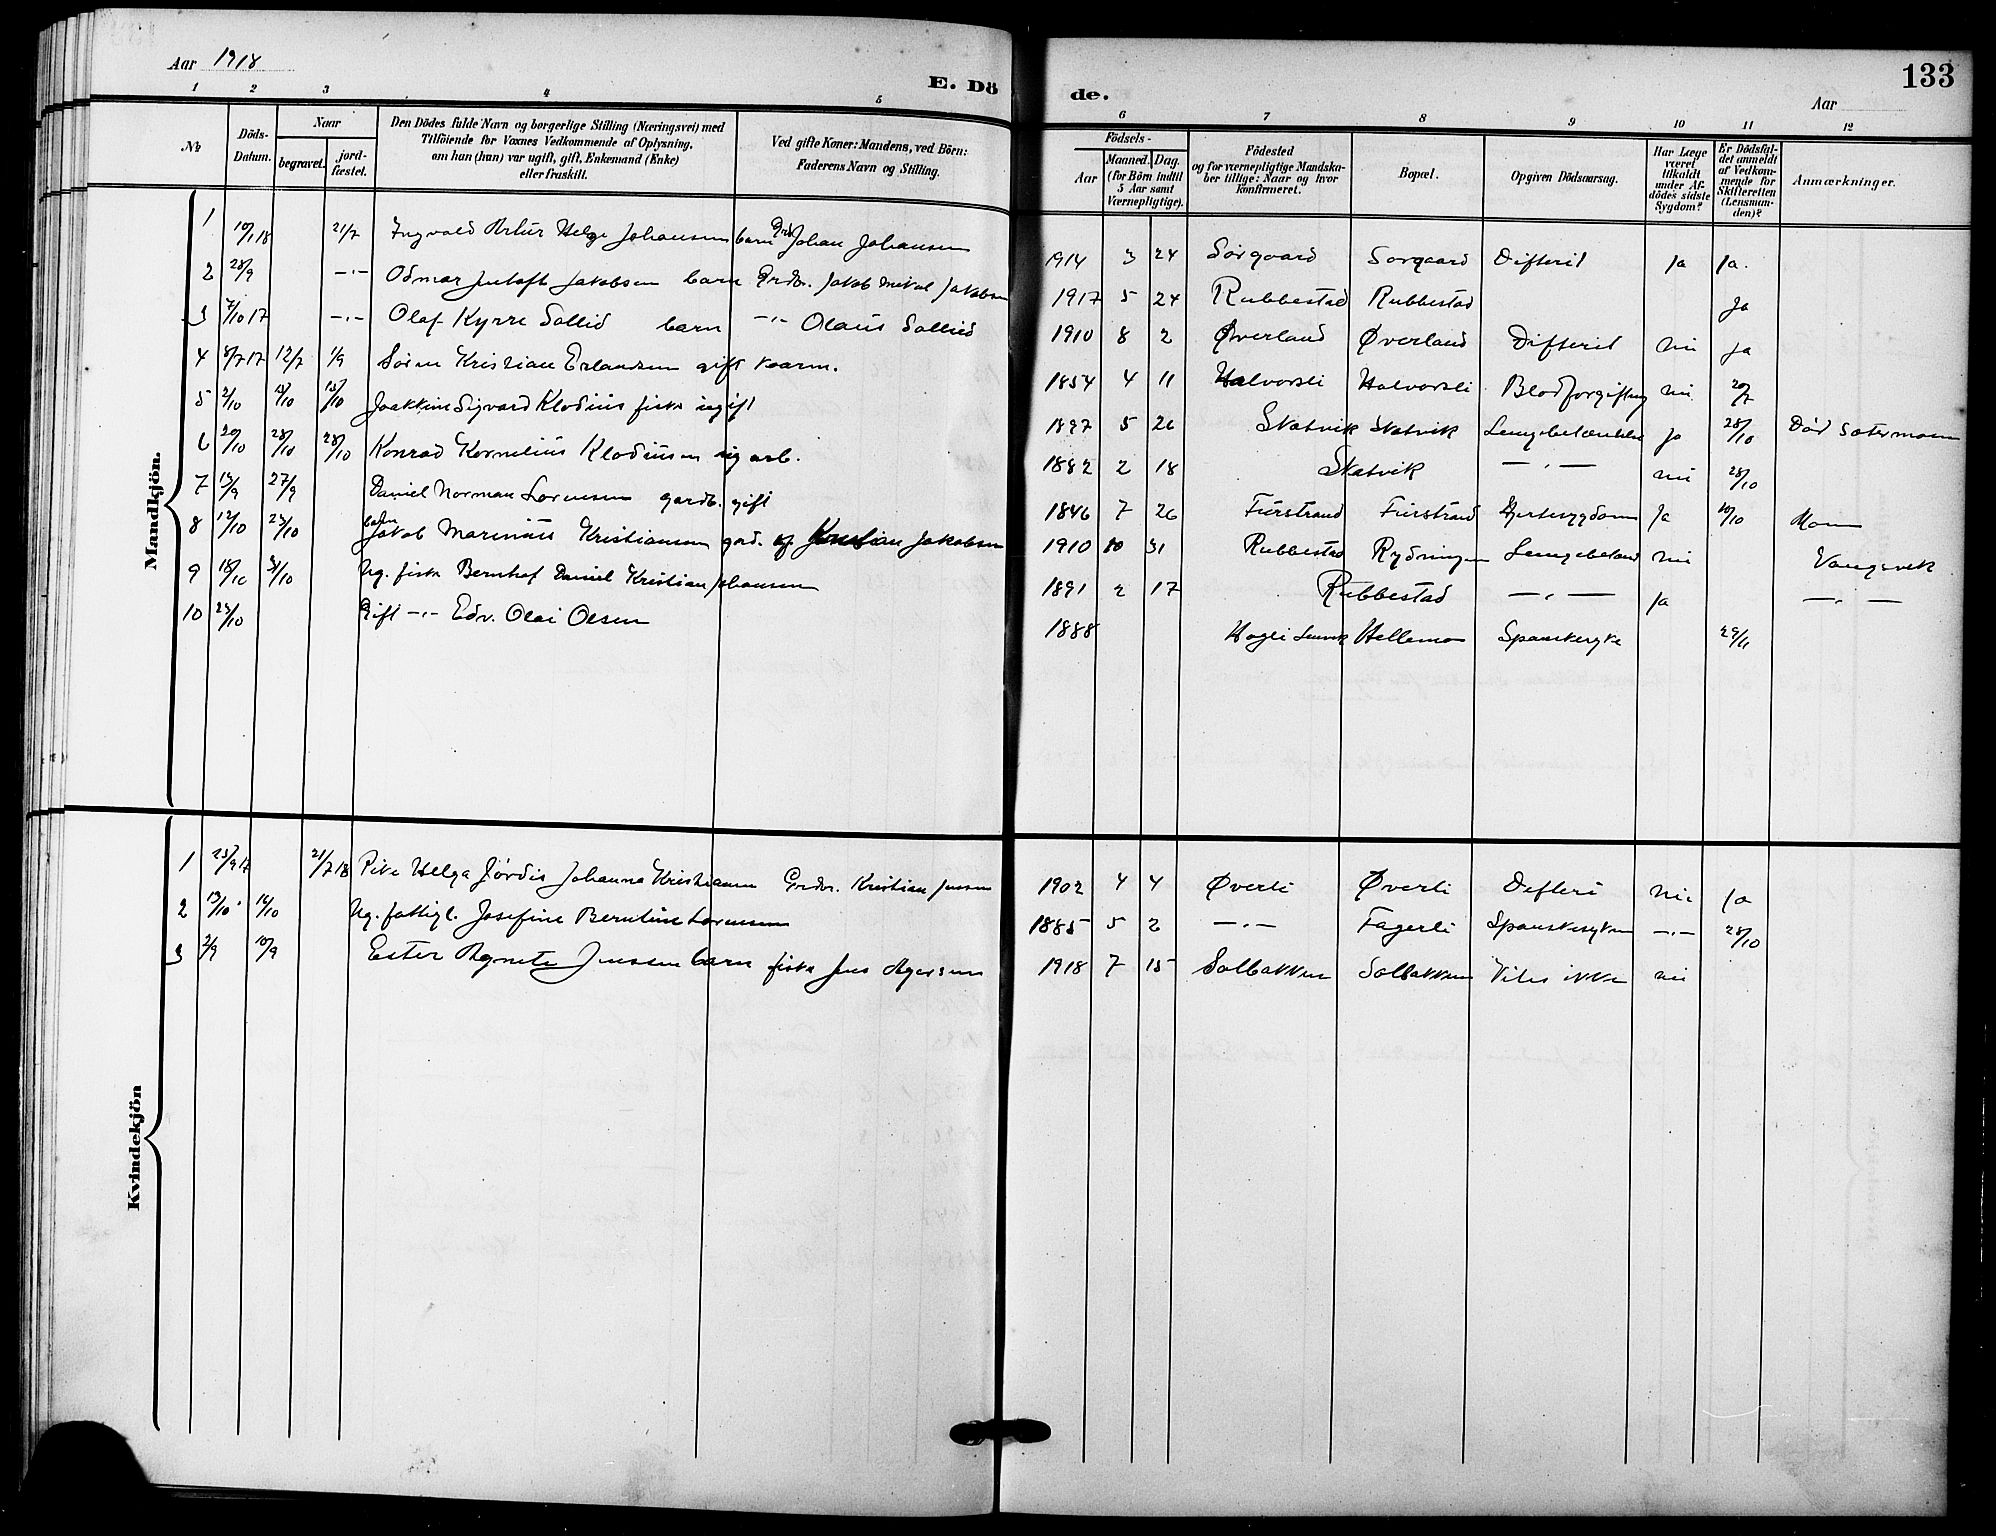 Aar 1918
E. Dö
de.
133
Aar
1 2 3 4 5
6 7 8 9 10 11 12
No
Döds-Datum.
Naar
begravet.
jord-fæstet.
Den Dödes fulde Navn og borgerlige Stilling (Næringsvei) med
Tilföiende for Voxnes Vedkommende af Oplysning,
om han (hun) var ugift, gift, Enkemand (Enke)
eller fraskilt.
Ved gifte Koner: Mandens, ved Börn:
Faderens Navn og Stilling.
Födsels-
Aar
Maaned. Dag.
(for Börn indtil
5 Aar samt
Værnepligtige).
Födested
og for værnepligtige Mandska-
ber tillige: Naar og hvor
konfirmeret.
Bopæl.
Opgiven Dödsaarsag.
Har Læge
været
tilkaldt
under Af-
dödes sidste
Sygdom?
Er Dödsfal-
det anmeldt
af Vedkom-
mende for
Skifteretten
(Lensman-
den)?
Anmærkninger.
Mandkjön.
1 10/1 18 21/7 Ingvald Artur Helge Johansen barn Grdb. Johan Johansen 1914 3 24 Sørgaard Sørgaard Difterit Ja Ja.
2 28/9 —"— Odmar Jakobsen barn Grdb. Jakob Mikal Jakobsen 1917 5 24 Rubbestad Rubbestad Ja
3 7/10 17 —"— Olaf Kyrre Sollid barn —"— Olaus Sollied 1910 8 2 Øverland Øverland Difterit nei Ja
4 8/7 17 12/7 1/9 Søren Kristian Erlandsen gift kaarm. 1854 4 11 Halvorsli Halvorsli Blodforgiftnig nei 20/7
5 2/10 15/10 Joakkim Sigvard Klodius fisker ugift 1897 5 26 Skatvik Skatvik Lungebetændelse Ja 28/10 Død
6 20/10 28/10 28/10 Konrad Kornelius Klodiussen ug arb. 1882 2 18 Skatvik —"— nei 28/10
7 15/9 27/9 Daniel Norman Lorensen gardb. gift 1846 7 26 Furstrand Furstrand Hjertesygdom Ja 10/10
8 12/10 23/10 barn Jakob Marinius Kristiansen gard. af Kristian Jakobsen 1910 10 31 Rubbestad Rydningen nei Vangsvik
9 18/10 31/10 Ug. fisker Bernhof Daniel Kristian Johansen 1891 2 17 Rubbestad —"— Ja —"—
10 23/10 Gift —"— Edv. Olai Olsen 1888 Hogli Hellemo Spanskesyke 29/11
Kvindekjön
1 23/9 17 21/7 18 Pike Helga Jørdis Johanna Kristiansen Grdbr. Kristian Jensen 1902 4 4 Øverli Øverli Difteri nei Ja
2 13/10 16/10 Ug. fattigl. Josefine Berntine Lorensen 1885 5 2 —"— Fagerli Spanskesyken —"— 28/10
3 2/9 10/9 Ester Agnete Jenssen barn fisker Jens Agersen 1918 7 15 Solbakken Solbakken Vites ikke nei